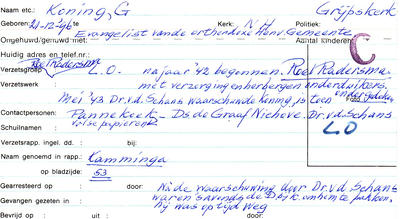 Naam etc.: Koning, G Grijpskerk
Geboren: 21-12-'96 te Kerk: N.H Politiek:
Evangelist van de orthendoxe Herv. Gemeente
Ongehuwd/gehuwd met: Aantal kinderen:
Huidig adres en telef.nr.: C
Roel Radersma
Verzetsgroep L.O. - najaar '42 begonnen. Roel Radersma.
Verzetswerk met verzorgingen herbergen onderduikers.
Mei '43 Dr. v.d. Schans waarschuwde koning, is toen ondergedoken
Contactpersonen: Pannekoek - Ds de Graaf Niehove. Dr. v.d. Schans
Schuilnamen valse papieren LO
Verzetsrapp. ingel. dd. : bij:
Naam genoemd in rapp.: Kamminga
op bladzijde: 53
Gearresteerd op : door: Ná de waarschuwing door Dr. v.d. Schans
Gevangen gezeten in : waren 's avonds de om hem te pakken,
hij was op tijd weg
Bevrijd op : uit: door: